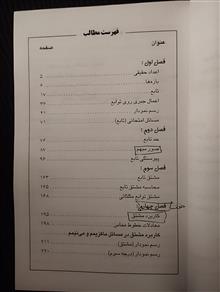 فهرست مطالب
عنوان صفحه
فصل اول:
اعداد حقیقی ۵
بازه‌ها
تابع ۱۷
اعمال جبری روی توابع ۳۶
رسم نمودار
مسائل امتحانی (تابع)
فصل دوم:
حد تابع
صور مبهم ۸۷
پیوستگی تابع ۹۶
فصل سوم:
مشتق تابع ۱۶۳
محاسبه مشتق تابع
مشتق توابع مثلثاتی ۱۸۵
فصل چهارم:
کاربرد مشتق ۱۹۵
معادلات خطوط مماس
کاربرد مشتق در مسائل ماکزیمم و می‌نیمم
رسم نمودار (مشتق) ۲۱۱
رسم نمودار (درجه سوم) ۲۲۰